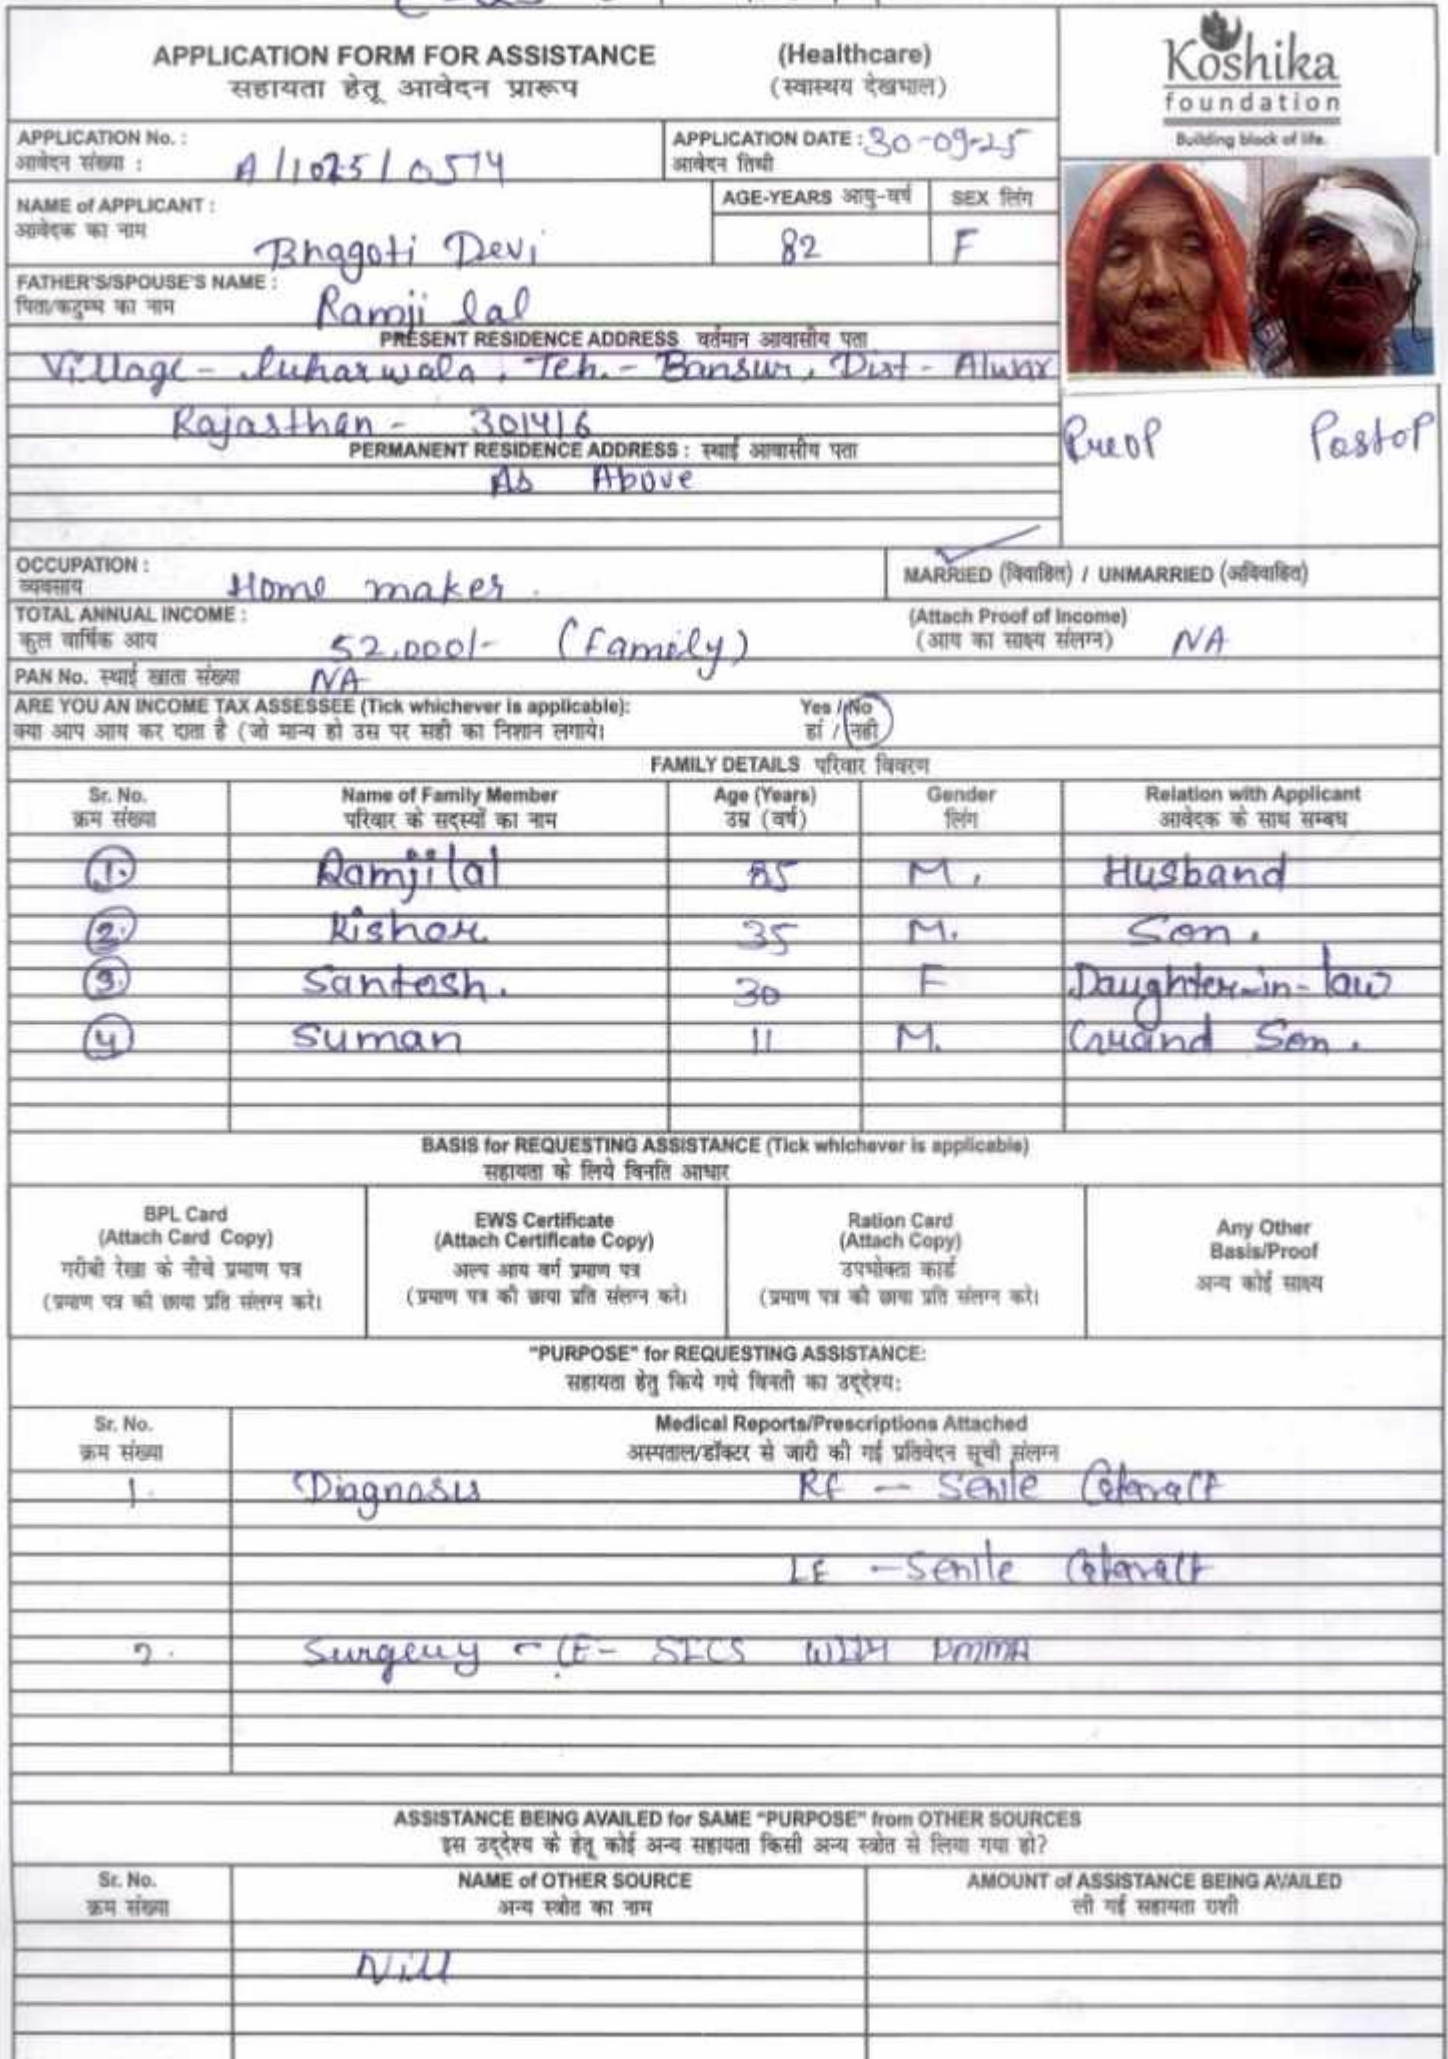 APPLICATION FORM FOR ASSISTANCE (Healthcare)
सहायता हेतू आवेदन प्रारूप (स्वास्थय देखभाल)
Koshika
foundation
Building block of life.
APPLICATION No. : A/1025/0574 APPLICATION DATE : 30-09-25
आवेदन संख्या : आवेदन तिथी
NAME of APPLICANT : AGE-YEARS आयु-वर्ष SEX लिंग
आवेदक का नाम Bhagoti Devi 82 F
FATHER'S/SPOUSE'S NAME :
पिता/कटुम्ब का नाम Ramji lal
PRESENT RESIDENCE ADDRESS वर्तमान आवासीय पता
Village - Luharwala, Teh. - Bansur, Dist - Alwar
Rajasthan - 301416
Preop Postop
PERMANENT RESIDENCE ADDRESS : स्थाई आवासीय पता
As Above
OCCUPATION :
व्यवसाय Home maker. MARRIED (विवाहित) / UNMARRIED (अविवाहित)
TOTAL ANNUAL INCOME : (Attach Proof of Income)
कुल वार्षिक आय 52,000/- (family) (आय का साक्ष्य संलग्न) NA
PAN No. स्थाई खाता संख्या NA
ARE YOU AN INCOME TAX ASSESSEE (Tick whichever is applicable): Yes / No
क्या आप आय कर दाता है (जो मान्य हो उस पर सही का निशान लगाये। हां / नही
FAMILY DETAILS परिवार विवरण
Sr. No. Name of Family Member Age (Years) Gender Relation with Applicant
क्रम संख्या परिवार के सदस्यों का नाम उम्र (वर्ष) लिंग आवेदक के साथ सम्बध
1. Ramjilal 85 M. Husband
2. Kishor. 35 M. Son.
3. Santosh. 30 F Daughter-in-law
4 Suman 11 M. Grand Son.
BASIS for REQUESTING ASSISTANCE (Tick whichever is applicable)
सहायता के लिये विनति आधार
BPL Card
(Attach Card Copy)
गरीबी रेखा के नीचे प्रमाण पत्र
(प्रमाण पत्र की छाया प्रति संलग्न करे।
EWS Certificate
(Attach Certificate Copy)
अल्प आय वर्ग प्रमाण पत्र
(प्रमाण पत्र की छाया प्रति संलग्न करे।
Ration Card
(Attach Copy)
उपभोक्ता कार्ड
(प्रमाण पत्र की छाया प्रति संलग्न करे।
Any Other
Basis/Proof
अन्य कोई साक्ष्य
"PURPOSE" for REQUESTING ASSISTANCE:
सहायता हेतु किये गये विनती का उद्देश्य:
Sr. No. Medical Reports/Prescriptions Attached
क्रम संख्या अस्पताल/डॉक्टर से जारी की गई प्रतिवेदन सूची संलग्न
1. Diagnosis RE - Senile Cataract
LE - Senile Cataract
2. Surgery - LE - SICS WITH PMMA
ASSISTANCE BEING AVAILED for SAME "PURPOSE" from OTHER SOURCES
इस उद्देश्य के हेतू कोई अन्य सहायता किसी अन्य स्त्रोत से लिया गया हो?
Sr. No. NAME of OTHER SOURCE AMOUNT of ASSISTANCE BEING AVAILED
क्रम संख्या अन्य स्त्रोत का नाम ली गई सहायता राशी
Nill